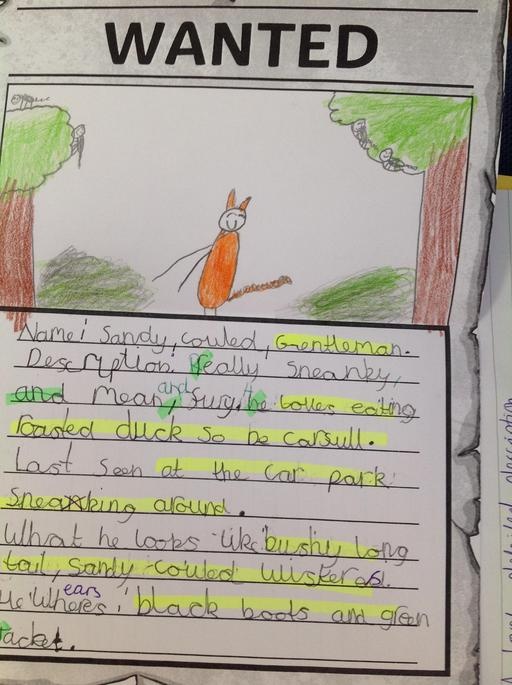 WANTED
Name: Sandy, couled, Gentleman.
Description. Really Sneanky,
and mean, and fury, he loves eating
roasted duck so be carsull.
Last Seen at the car park
sneaking around.
What he loops like bushy long
tail, Sandy couled wisters.
He Wheres ears black boots and green
Jacket.